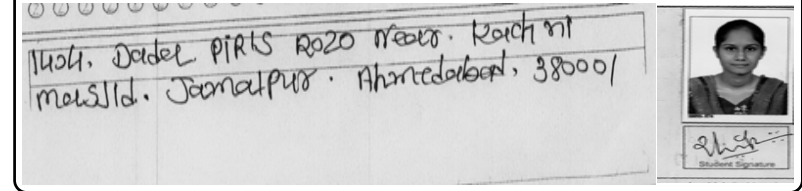 1404, Dadel PiRis ROZO Near. Kach ni
masjid. Jamalpur. Ahmedabad, 380001
Student Signature